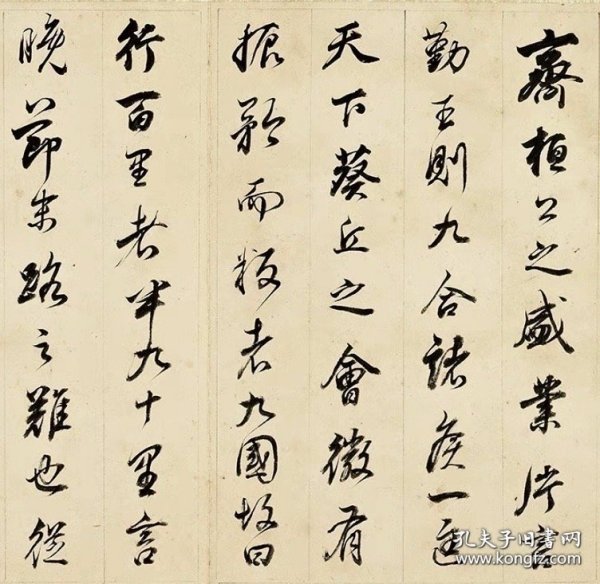 齊桓公之盛業片言
勤王則九合諸侯一匡
天下葵丘之會微有
振矜而叛者九國故曰
行百里者半九十里言
晚節末路之難也從
孔夫子旧书网
www.kongfz.com